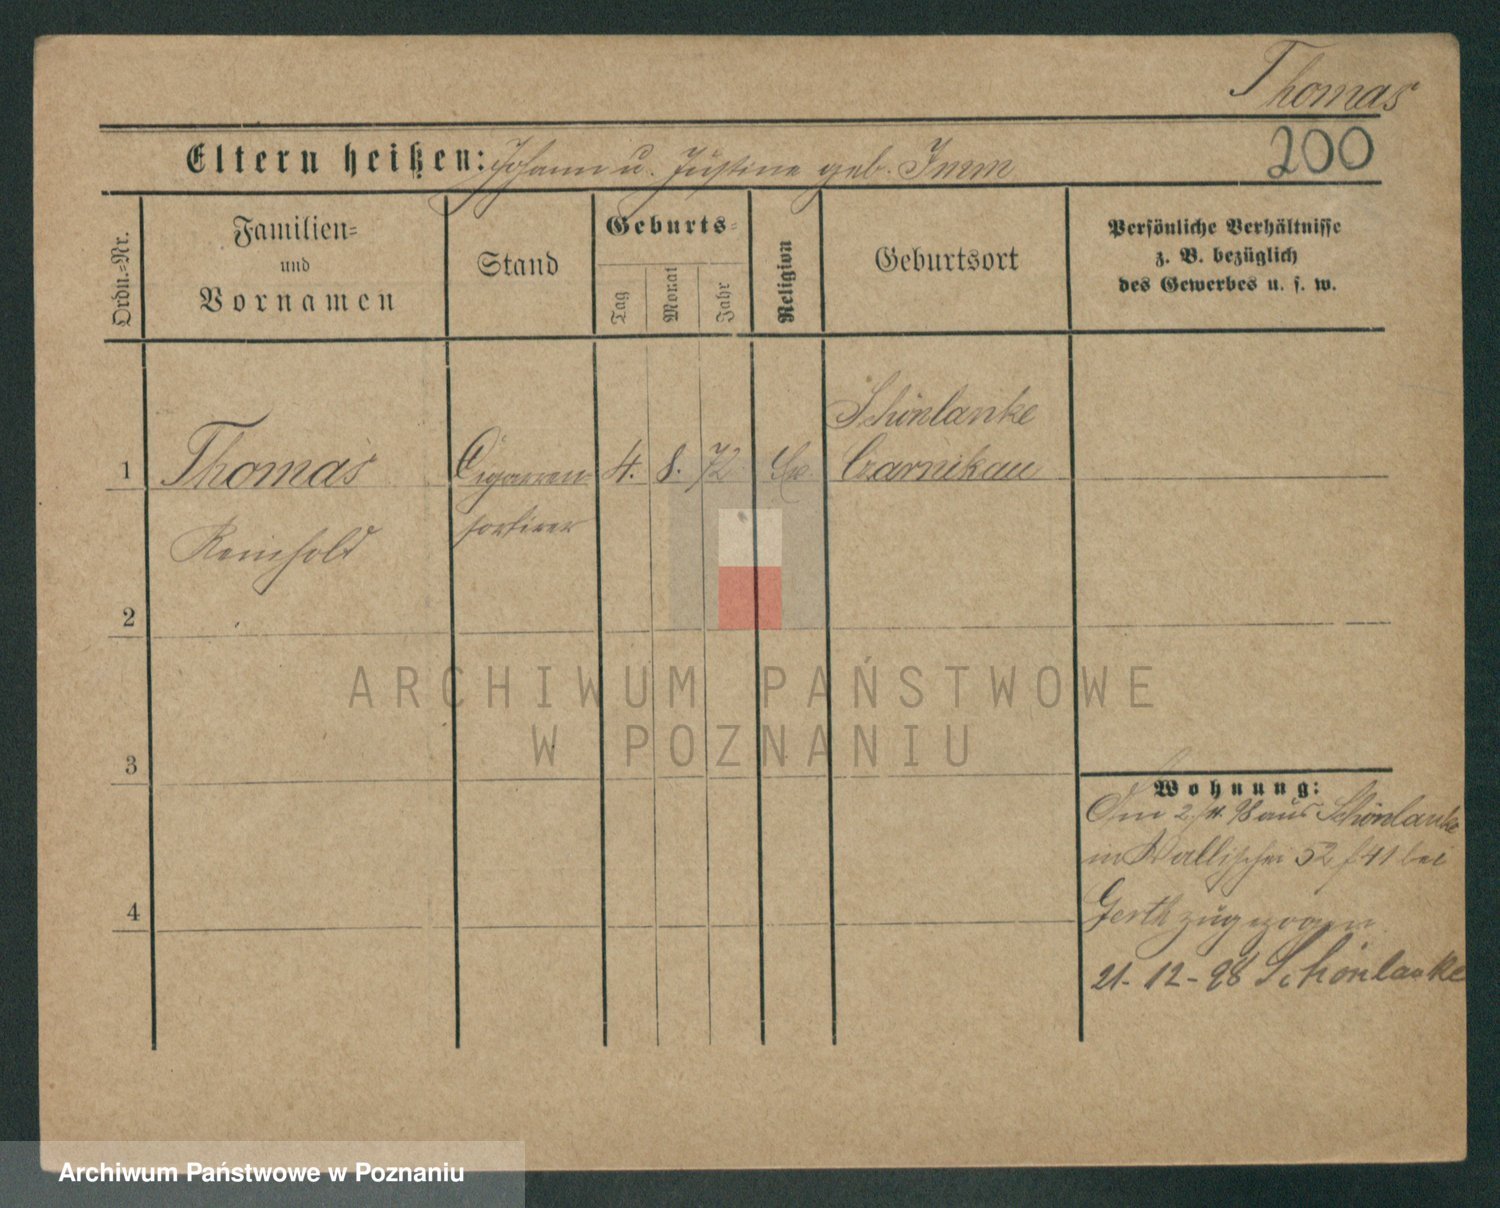 Thomas
200
Eltern heißen: Johann u. Justine geb. Imm
Ordn.-Nr.
Familien-
und
Vornamen
Stand
Geburts-
Tag
Monat
Jahr
Religion
Geburtsort
Persönliche Verhältnisse
z. B. bezüglich
des Gewerbes u. s. w.
Schönlanke
1 Thomas Cigarren- 4. 8. 72 Czarnikau
Reinhold sortirer
2
3
4
Wohnung:
98 aus Schönlanke
in Wallischei 52 bei
Gerth zugezogen
21-12-98 Schönlanke
ARCHIWUM PAŃSTWOWE
W POZNANIU
Archiwum Państwowe w Poznaniu